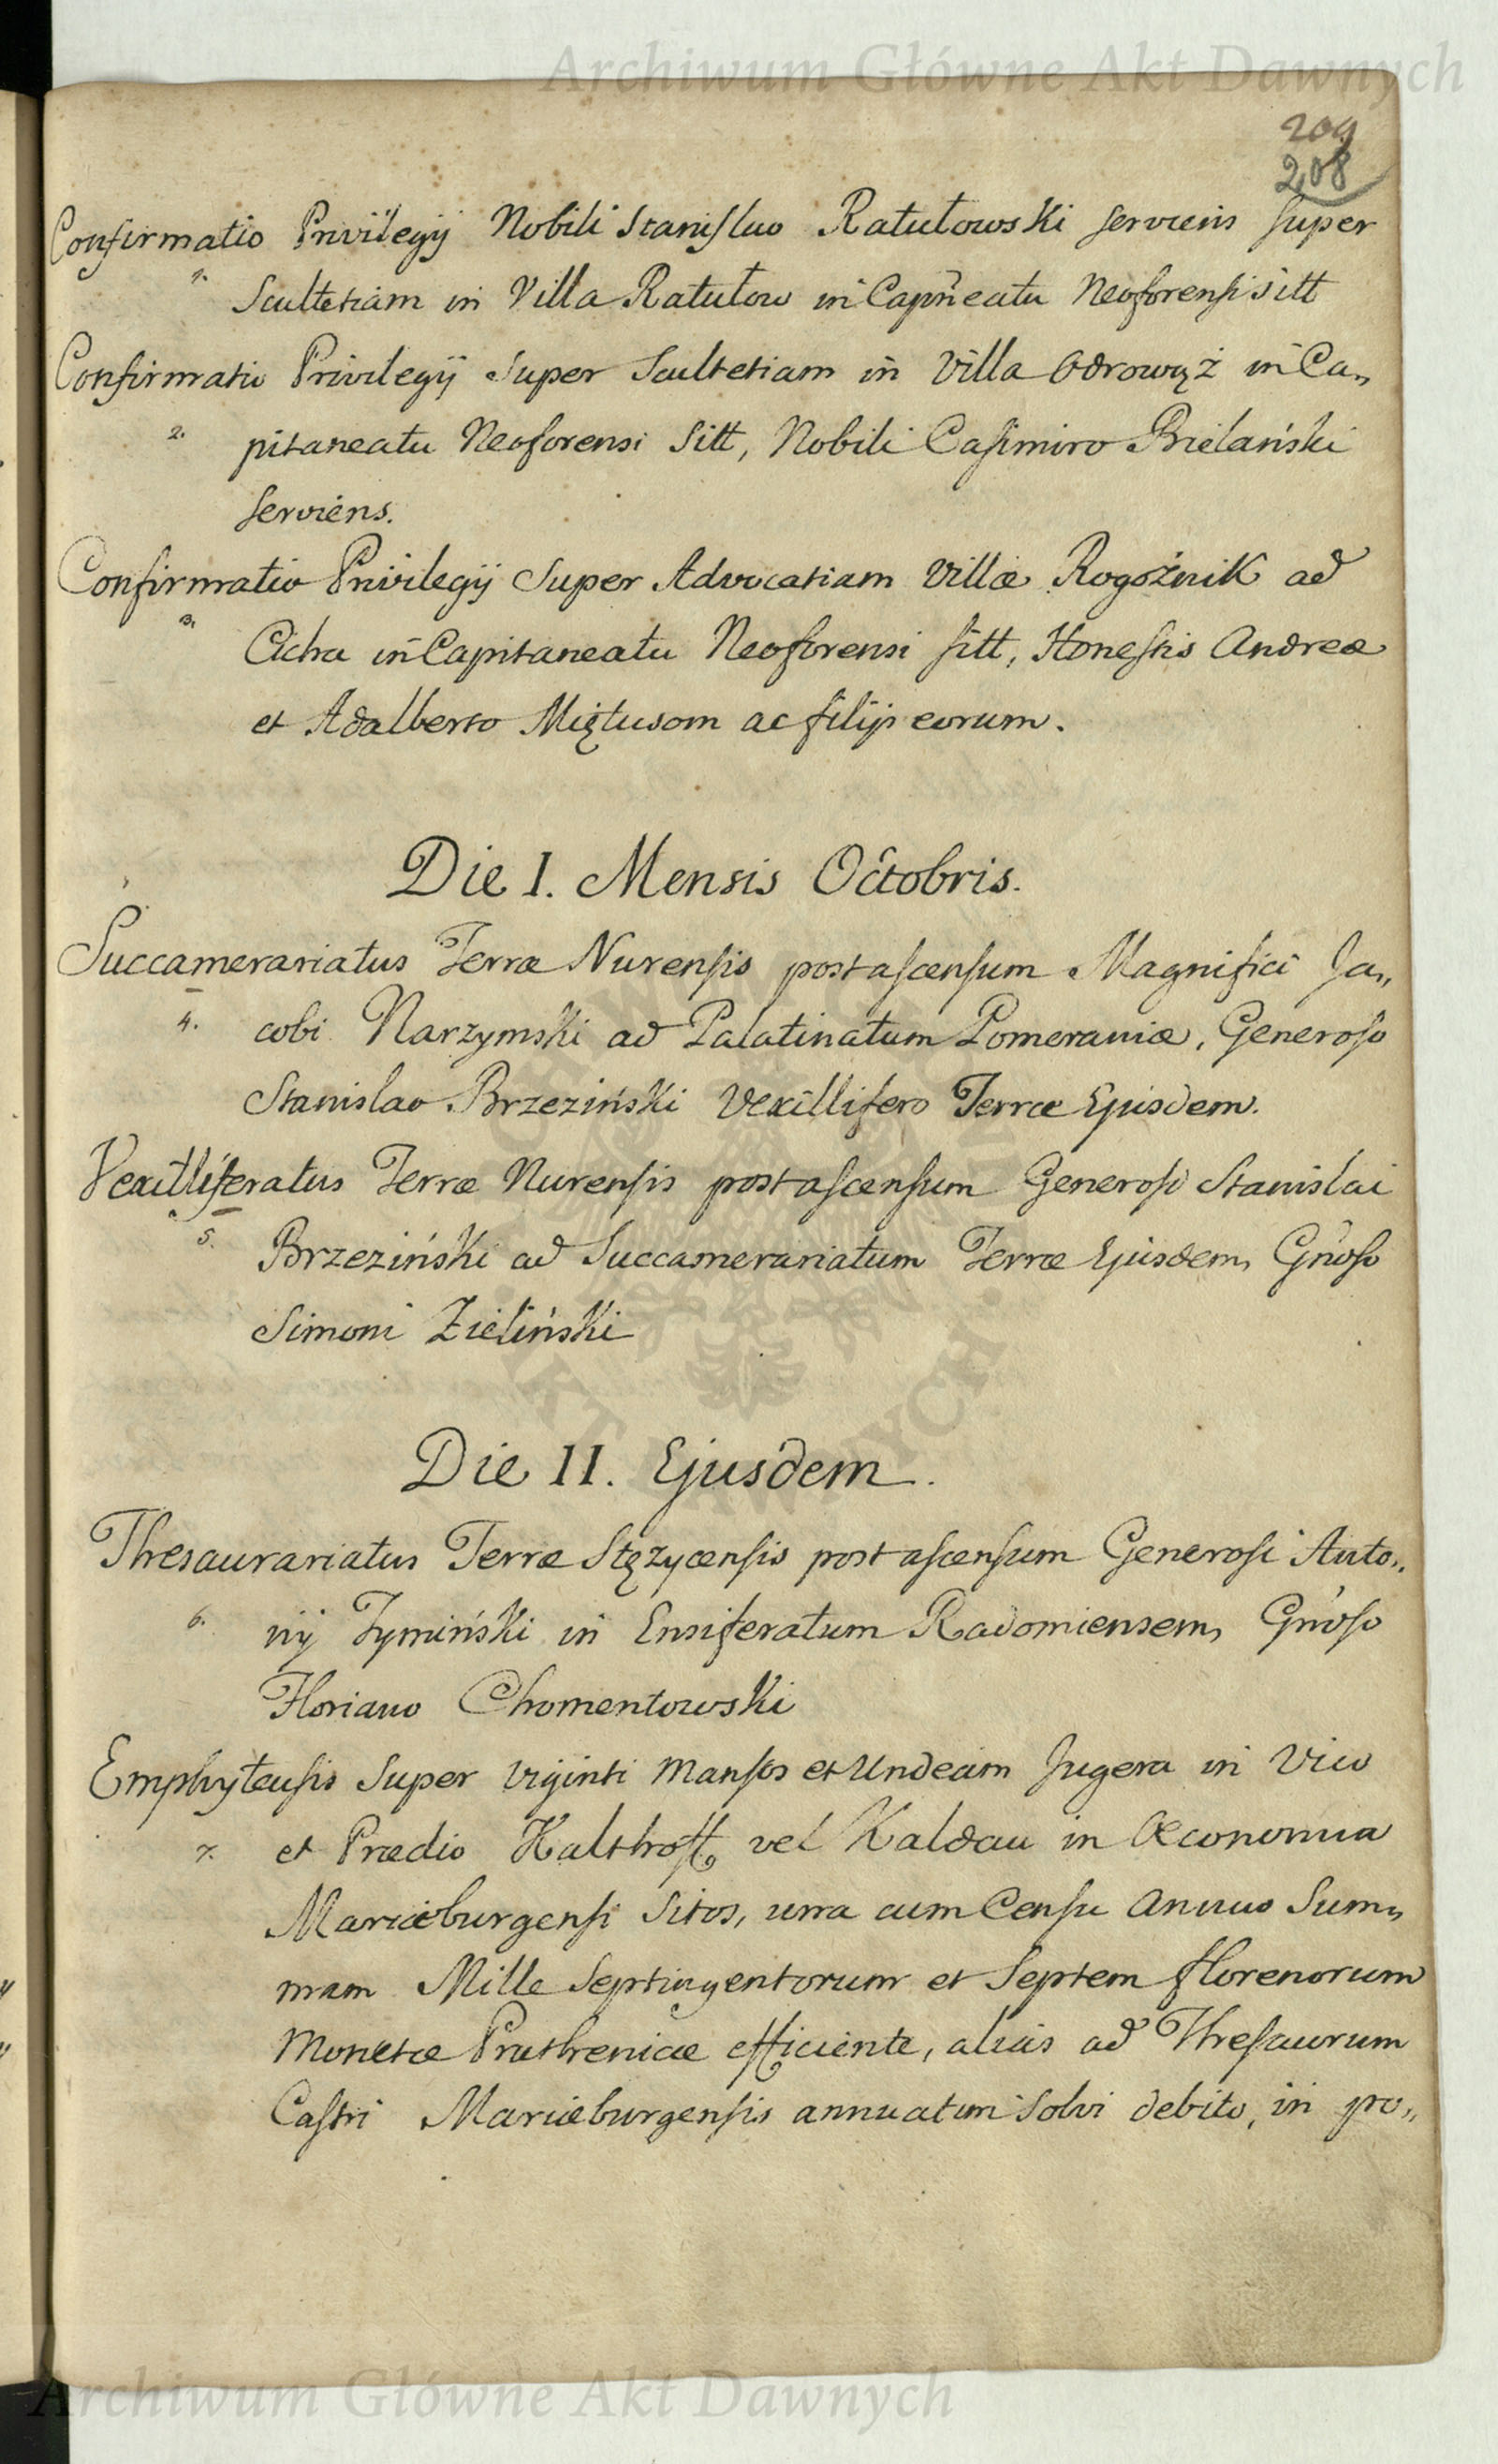 Archiwum Główne Akt Dawnych
209
208
Confirmatio Privilegij Nobili Stanislao Ratułowski serviens super
1. Scultetiam in Villa Ratułow in Capñeatu Neoforensi sitt
Confirmatio Privilegij Super Scultetiam in Villa Odrowąż in Ca„
2. pitaneatu Neoforensi Sitt, Nobili Casimiro Bielański
serviens.
Confirmatio Privilegij Super Advocatiam Villæ Rogoźnik ad
3. Cicha in Capitaneatu Neoforensi sitt, Honestis Andreæ
et Adalberto Miętusom ac filijs eorum.
Die I. Mensis Octobris.
Succamerariatus Terræ Nurensis post ascensum Magnifici Ja„
4. cobi Narzymski ad Palatinatum Pomeraniæ, Generoso
Stanislao Brzeziński Vexillifero Terræ Ejusdem.
Vexilliferatus Terræ Nurensis post ascensum Generosi Stanislai
5. Brzeziński ad Succamerariatum Terræ Ejusdem, Gñoso
Simoni Zieliński
Die II. Ejusdem.
Thesaurariatus Terræ Stęzycensis post ascensum Generosi Anto„
6. nij Zymiński in Ensiferatum Radomiensem, Gñoso
Floriano Chomentowski
Emphyteusis Super Viginti Mansos et Undecim Jugera in Vico
7. et Prædio Kalthoff vel Kaldau in Œconomia
Mariæburgensi Sitos, una cum Censu Annuo Sum„
mam Mille Septingentorum et Septem florenorum
Monetæ Pruthenicæ efficiente, alias ad Thesaurum
Castri Mariæburgensis annuatim Solvi debito, in pro„
Archiwum Główne Akt Dawnych